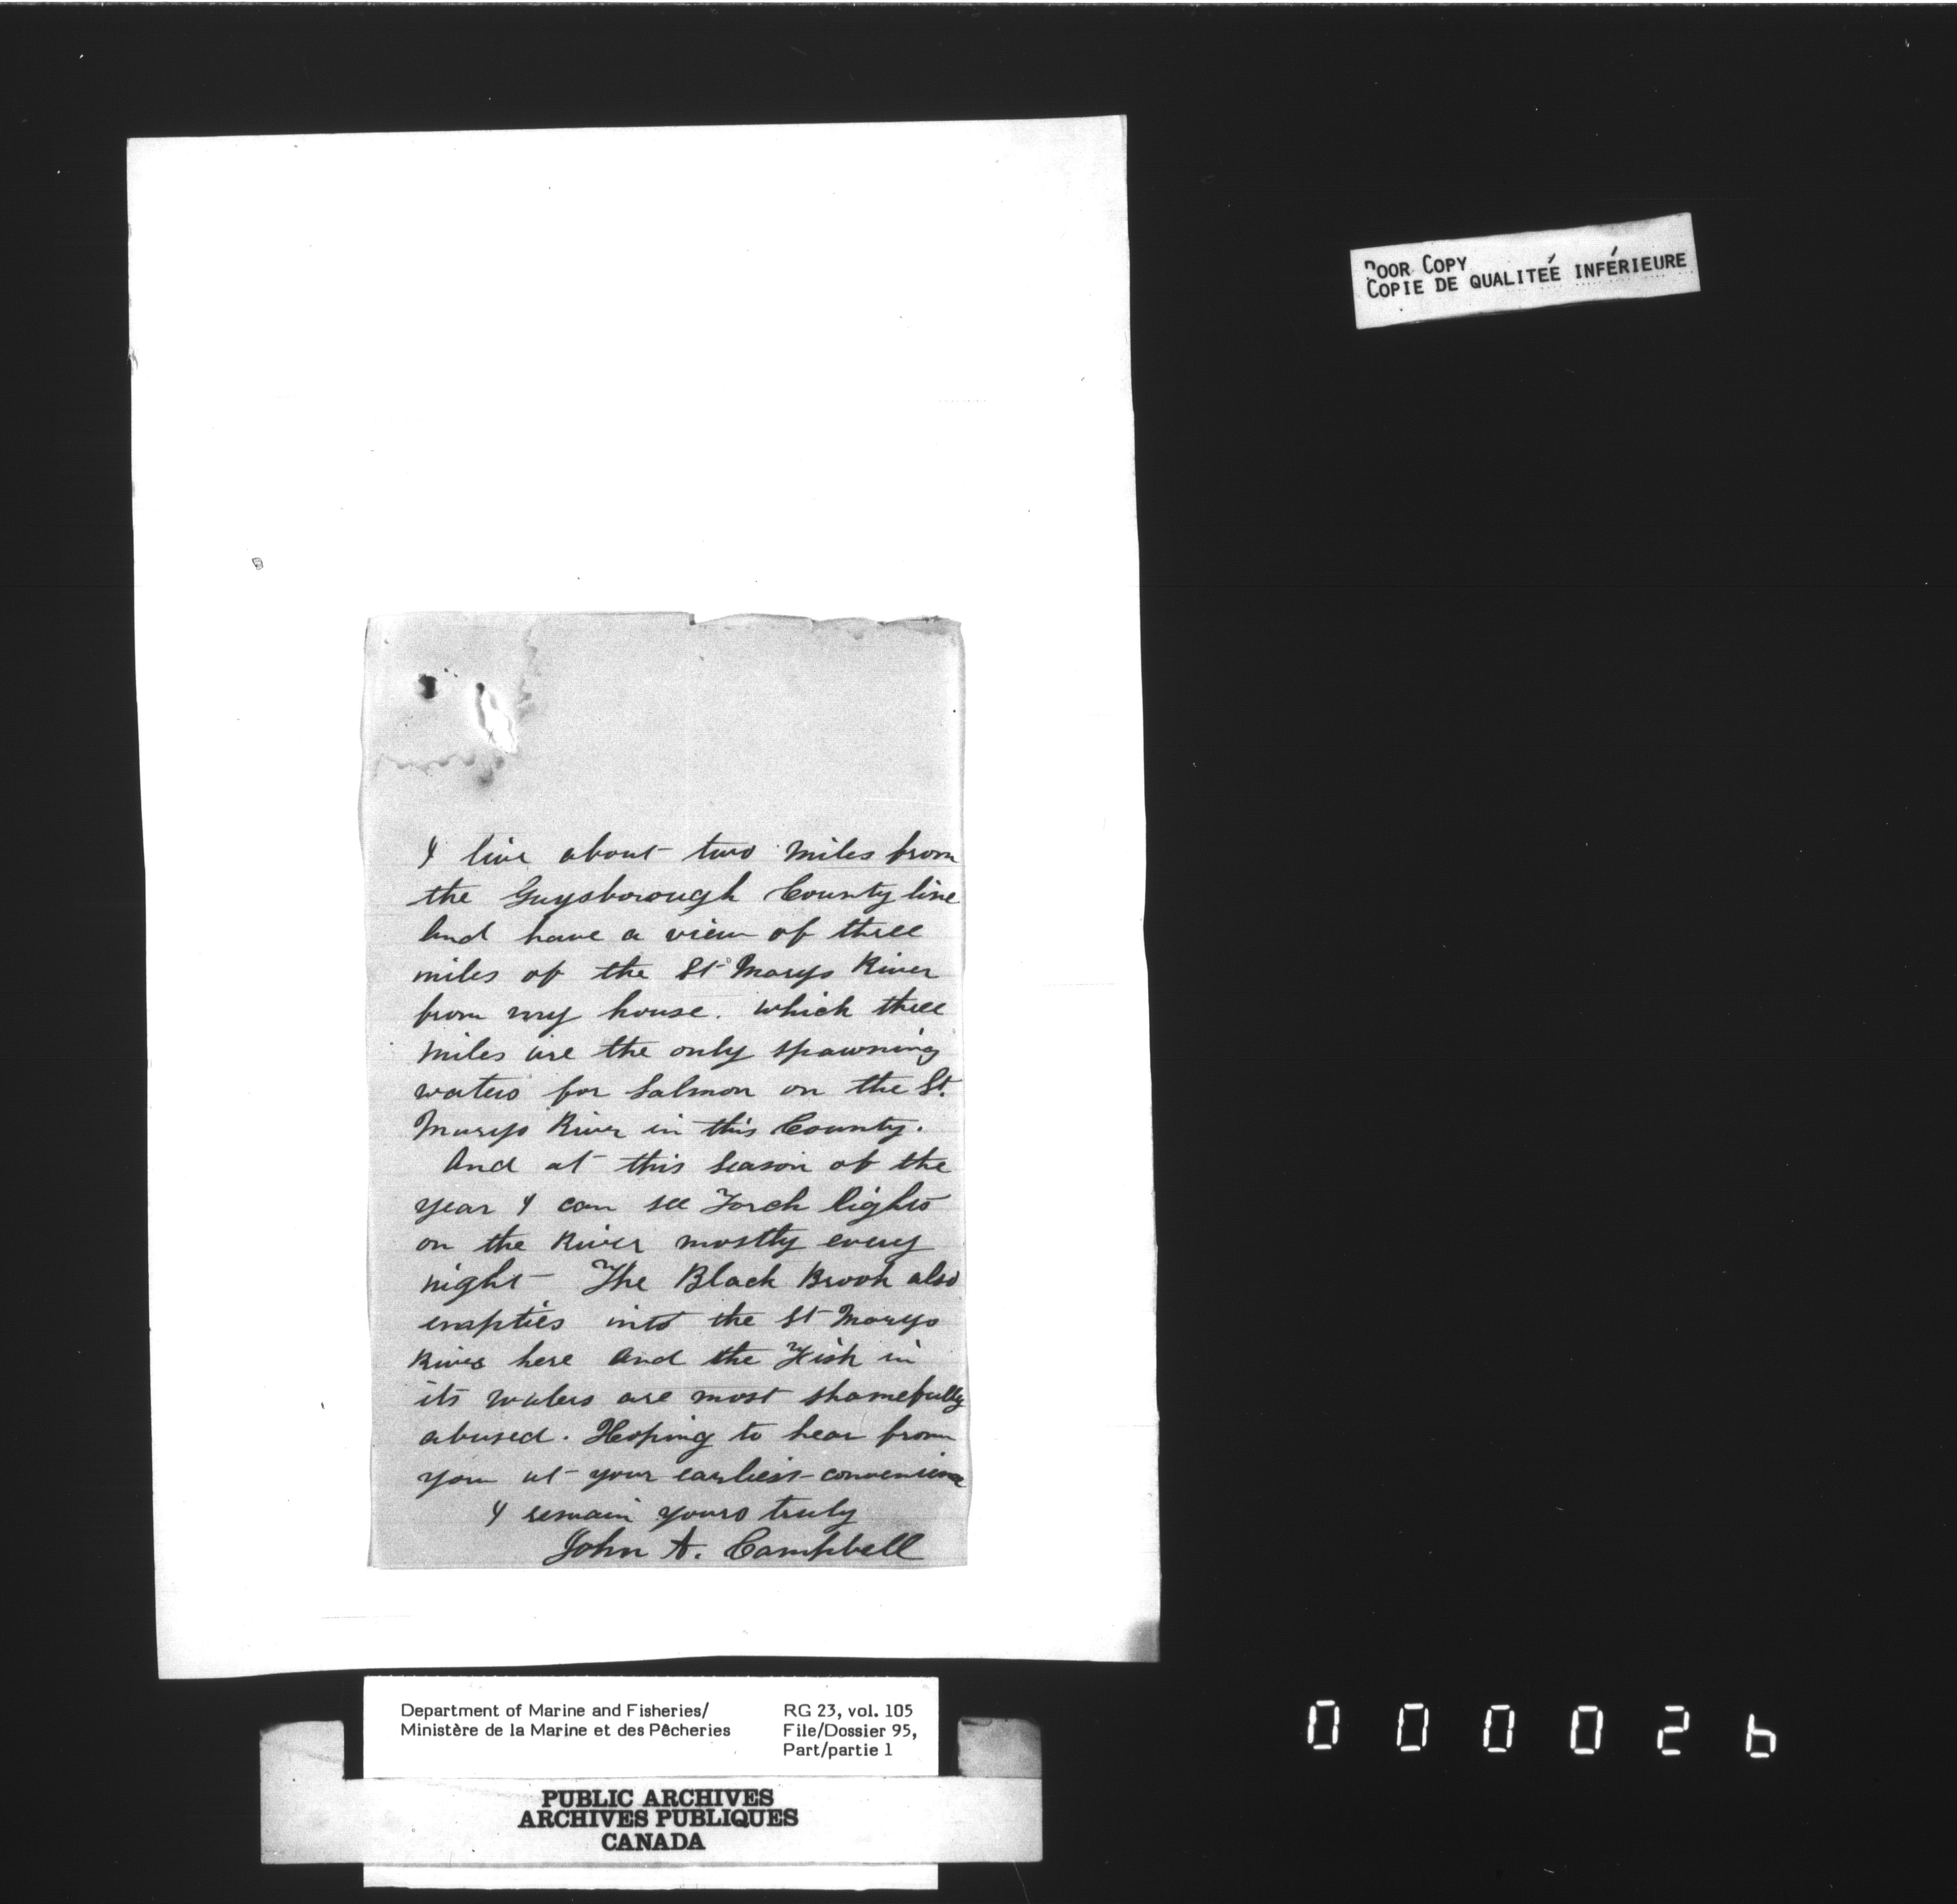 POOR COPY
COPIE DE QUALITEÉ INFÉRIEURE
I live about two miles from
the Guysborough County line
And have a view of three
miles of the St Marys River
from my house. which three
miles are the only spawning
waters for Salmon on the St.
Marys River in this County.
And at this Season of the
year I can see Torch lights
on the River mostly every
night The Black Brook also
empties into the St Marys
River here And the Fish in
its waters are most shamefully
abused. Hoping to hear from
you at your earliest convenience
I remain yours truly
John A. Campbell
Department of Marine and Fisheries/
Ministère de la Marine et des Pêcheries
RG 23, vol. 105
File/Dossier 95,
Part/partie 1
PUBLIC ARCHIVES
ARCHIVES PUBLIQUES
CANADA
000026